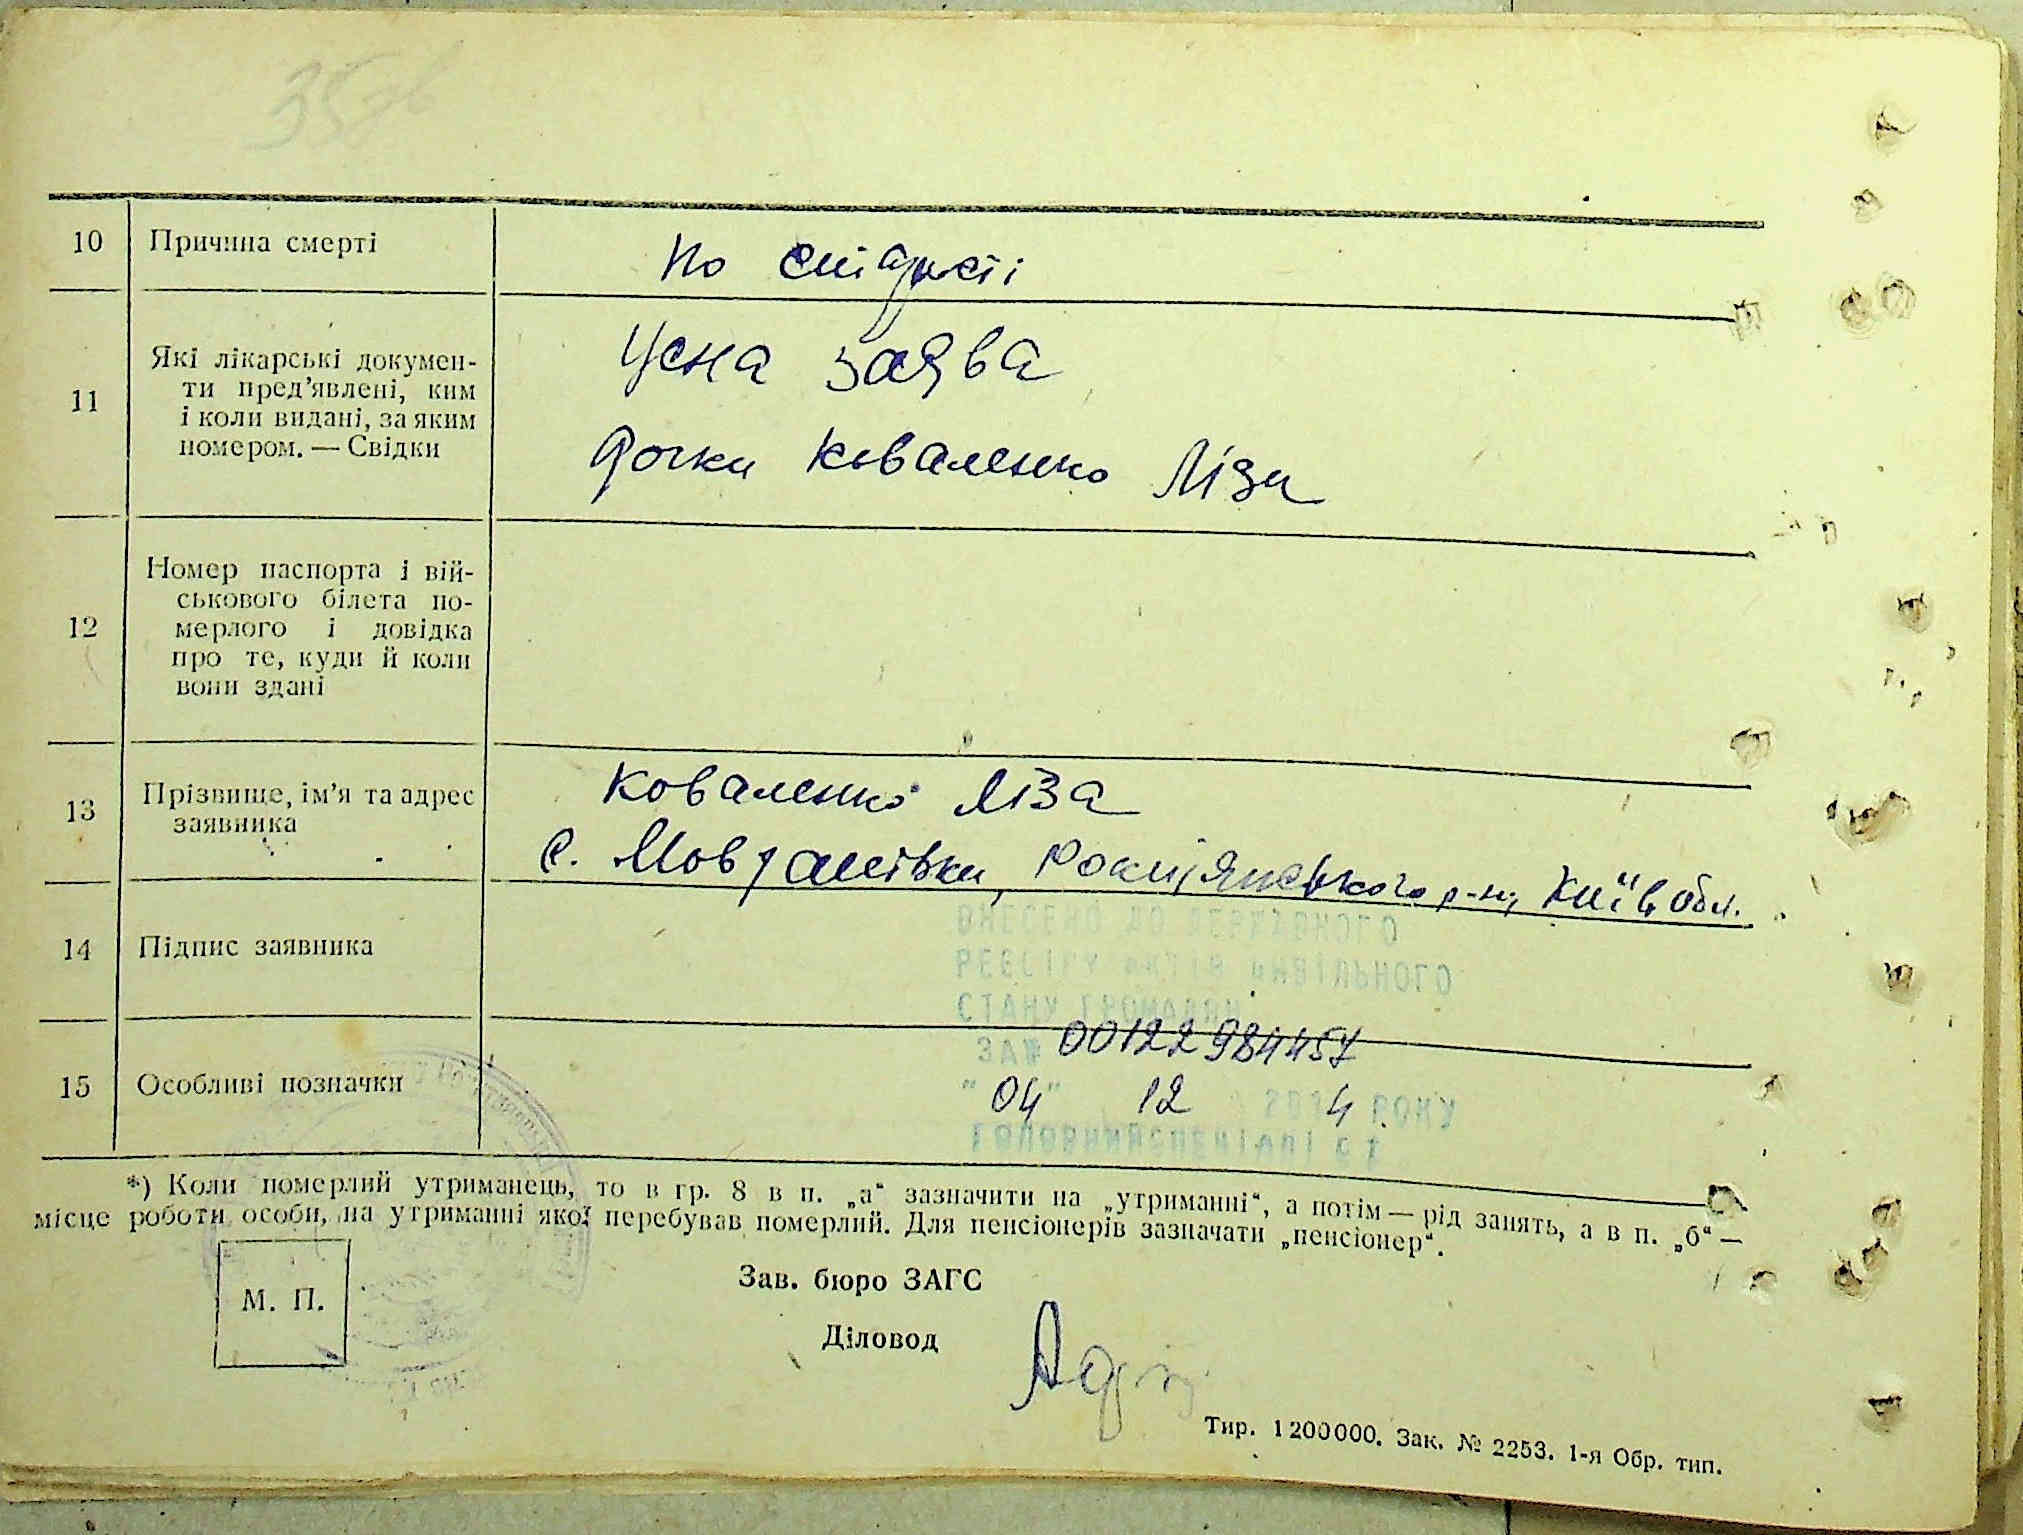 10 Причина смерті
По старості
11 Які лікарські докумен-
ти пред’явлені, ким
і коли видані, за яким
номером. — Свідки
Усна заява
дочки Коваленко Лізи
12 Номер паспорта і вій-
ськового білета по-
мерлого і довідка
про те, куди й коли
вони здані
13 Прізвище, ім’я та адрес
заявника
Коваленко Ліза
с. Ракитянського р-ну, Київ. обл.
14 Підпис заявника
ВНЕСЕНО ДО ДЕРЖАВНОГО
РЕЄСТРУ АКТІВ ЦИВІЛЬНОГО
СТАНУ ГРОМАДЯН
ЗА № 00122984457
15 Особливі позначки
"04" 12 2014 РОКУ
ГОЛОВНИЙ СПЕЦІАЛІСТ
*) Коли померлий утриманець, то в гр. 8 в п. „а“ зазначити на „утриманні“, а потім — рід занять, а в п. „б“ —
місце роботи особи, на утриманні якої перебував померлий. Для пенсіонерів зазначати „пенсіонер“.
М. П.
Зав. бюро ЗАГС
Діловод
Тир. 1200000. Зак. № 2253. 1-я Обр. тип.